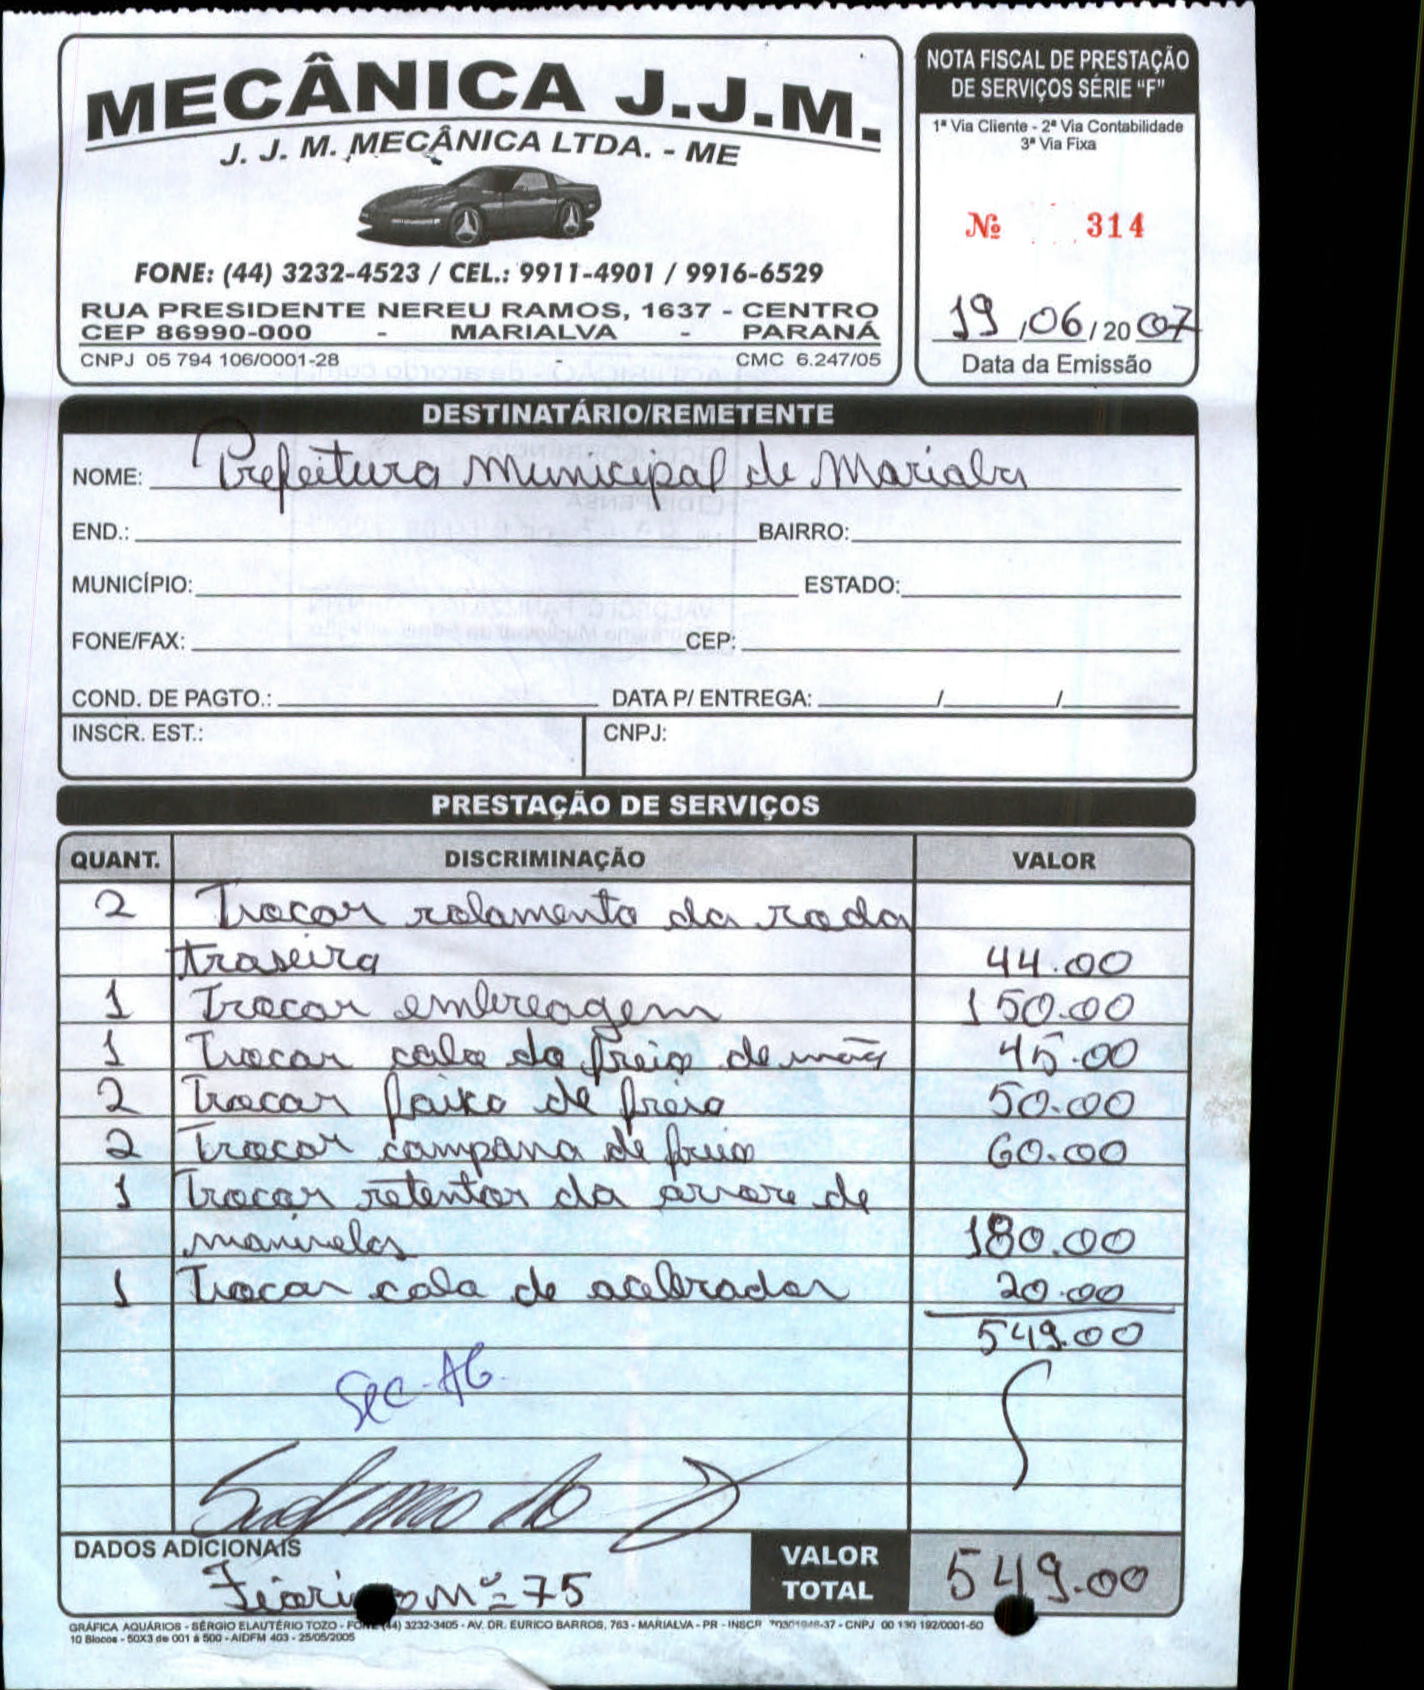 MECÂNICA J.J.M.
J. J. M. MECÂNICA LTDA. - ME
FONE: (44) 3232-4523 / CEL.: 9911-4901 / 9916-6529
RUA PRESIDENTE NEREU RAMOS, 1637 - CENTRO
CEP 86990-000 - MARIALVA - PARANÁ
CNPJ 05 794 106/0001-28 - CMC 6.247/05
NOTA FISCAL DE PRESTAÇÃO
DE SERVIÇOS SÉRIE “F”
1ª Via Cliente - 2ª Via Contabilidade
3ª Via Fixa
Nº 314
19/06/2007
Data da Emissão
DESTINATÁRIO/REMETENTE
NOME: Prefeitura Municipal de Marialva
END.: BAIRRO:
MUNICÍPIO: ESTADO:
FONE/FAX: CEP:
COND. DE PAGTO.: DATA P/ ENTREGA: / /
INSCR. EST.: CNPJ:
PRESTAÇÃO DE SERVIÇOS
QUANT. DISCRIMINAÇÃO VALOR
2 Trocar rolamento da roda
traseira 44.00
1 Trocar embreagem 150.00
1 Trocar cabo do freio de mão 45.00
2 Trocar faixa de freio 50.00
2 Trocar campana de freio 60.00
1 Trocar retentor da arvore de
manivelas 180.00
1 Trocar cabo de acelerador 20.00
549.00
Sec-AG
DADOS ADICIONAIS
Nº 75
VALOR
TOTAL 549.00
GRÁFICA AQUÁRIOS - SÉRGIO ELAUTÉRIO TOZO - FONE (44) 3232-3405 - AV. DR. EURICO BARROS, 763 - MARIALVA - PR - INSCR - CNPJ 00 130 192/0001-50
10 Blocos - 50X3 de 001 à 500 - AIDFM 403 - 25/05/2005